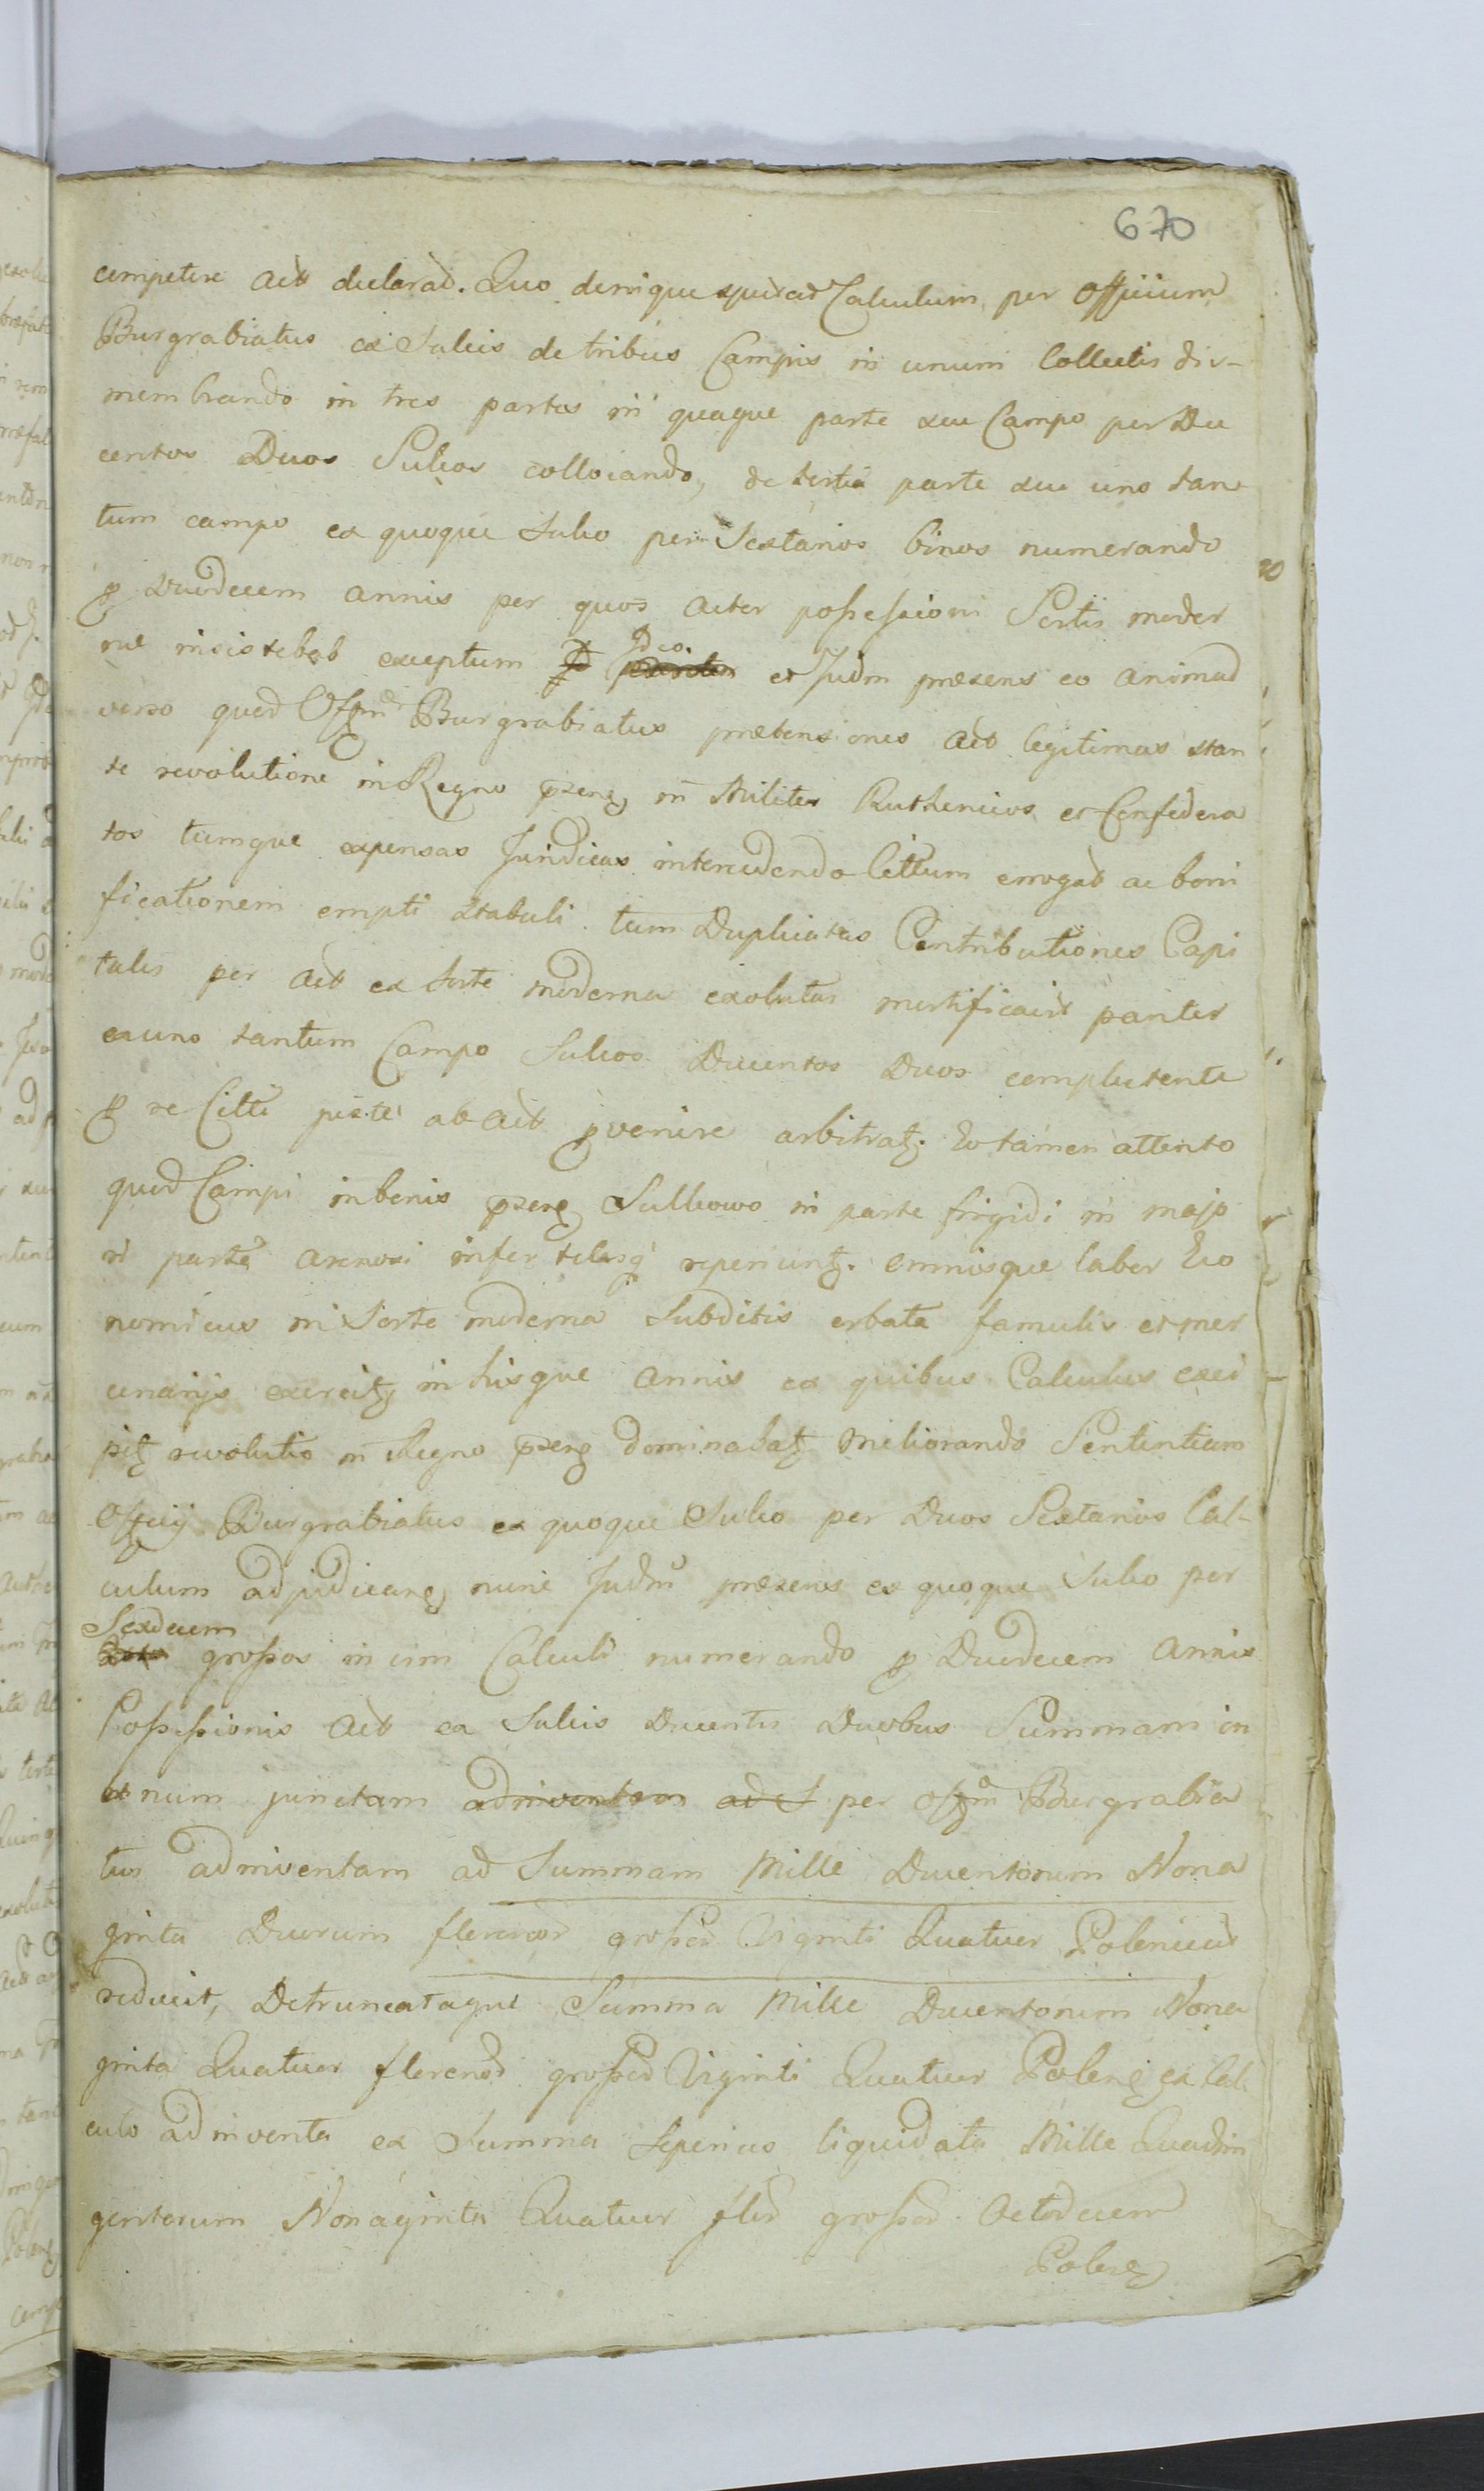 670
competere Actt declarat. Quo denique spectat Calculum per Officium
Burgrabiatus ex Sulcis de tribus Campis in unum Collectis dis-
membrando in tres partes in quaque parte seu Campo per Du
centos Duos Sulcos collocando, de tertia parte seu uno tan
tum campo ex quoque Sulco per Sextarios binos numerando
p Duodecem annis per quos Acter possessioni Sortis moder
nae insistebat exceptum Id eo. et Judm praesens eo animad
verso quod Offm Burgrabiatus praetensiones Actt legitimas stan
te revolutione in Regno praens in Milites Ruthenicos et Confedera
tos tumque expensas Juridicas intercedendo Cittum errogat ac boni
ficationem empti Stabuli tum Duplicatas Contributiones Capi
talis per Actt ex Sorte moderna exolutas mortificavit pariter
ex uno tantum Campo Sulcos Ducentos Duos complectente
p re Citti piete ab Actt pvenire arbitratz. Eo tamen attento
quod Campi in bonis praens Sulkowo in parte frigidi in majo
ri parte arenosi infertilesq reperiuntz. omnisque labor Eco
nomicus in Sorte moderna Subditis orbata famulis et mer
cenarijs exercitz in hisque annis ex quibus Calculus exci
pitz revolutio in Regno praens dominabatz meliorando Sententiam
Officij Burgrabiatus ex quoque Sulco per Duos Sextarios Cal-
culum adjudicans nunc Judm praesens ex quoque Sulco per
Sexdecem
grossos in vim Calculi numerando p Duodecem Annis
Possessionis Actt ex Sulcis Ducentis Duobus Summam in
unum junctam adinventam ad S per Offm Burgrabia
tus adinventam ad Summam Mille Ducentorum Nona
ginta Duorum florenor grossor Viginti Quatuor Polonical
reducit, Detruncataque Summa Mille Ducentorum Nona
ginta Quatuor florenor grossor Viginti Quatuor Polonz ex Cal
culo adinventa ex Summa superius liquidata Mille Quadrin
gentorum Nonaginta Quatuor flor grossor Octodecem
Polonz